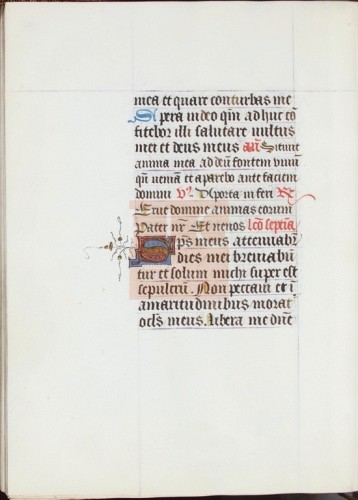 mea et quare conturbas me
Spera in deo qm̄ adhuc cō
fitebor illi salutare vultus
mei et deus meus añ Sitiuit
anima mea ad deū fontem viuū
qn̄ ueniā et aparebo ante faciem
domini V̓. A porta inferi R̄
Erue domine animas eorum
Pater nr̄ Et ne nos lcō septīa
Sps meus attenuabr̄
dies mei breuiabun
tur et solum michi super est
sepulcrū. Non peccaui et ī
amaritudinibus morat̄
ocls meus. Libera me dn̄e